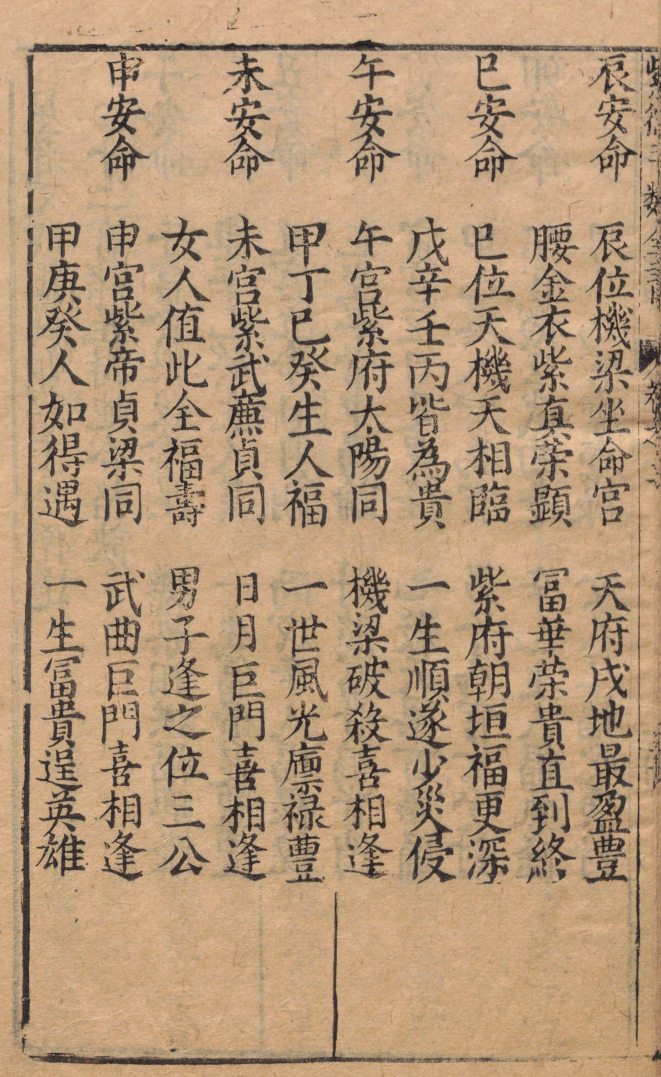 辰安命　辰位機梁坐命宫　天府戌地最盈豊
腰金衣紫真榮顕　冨華荣貴直到終
巳安命　巳位天機天相臨　紫府朝垣福更深
戊辛壬丙皆為貴　一生順遂少災侵
午安命　午宫紫府太陽同　機梁破殺喜相逢
甲丁巳癸生人福　一世風光廪禄豊
未安命　未宫紫武廉貞同　日月巨門喜相逢
女人值此全福壽　男子逢之位三公
申安命　申宫紫帝貞梁同　武曲巨門喜相逢
甲庚癸人如得遇　一生冨貴逞英雄